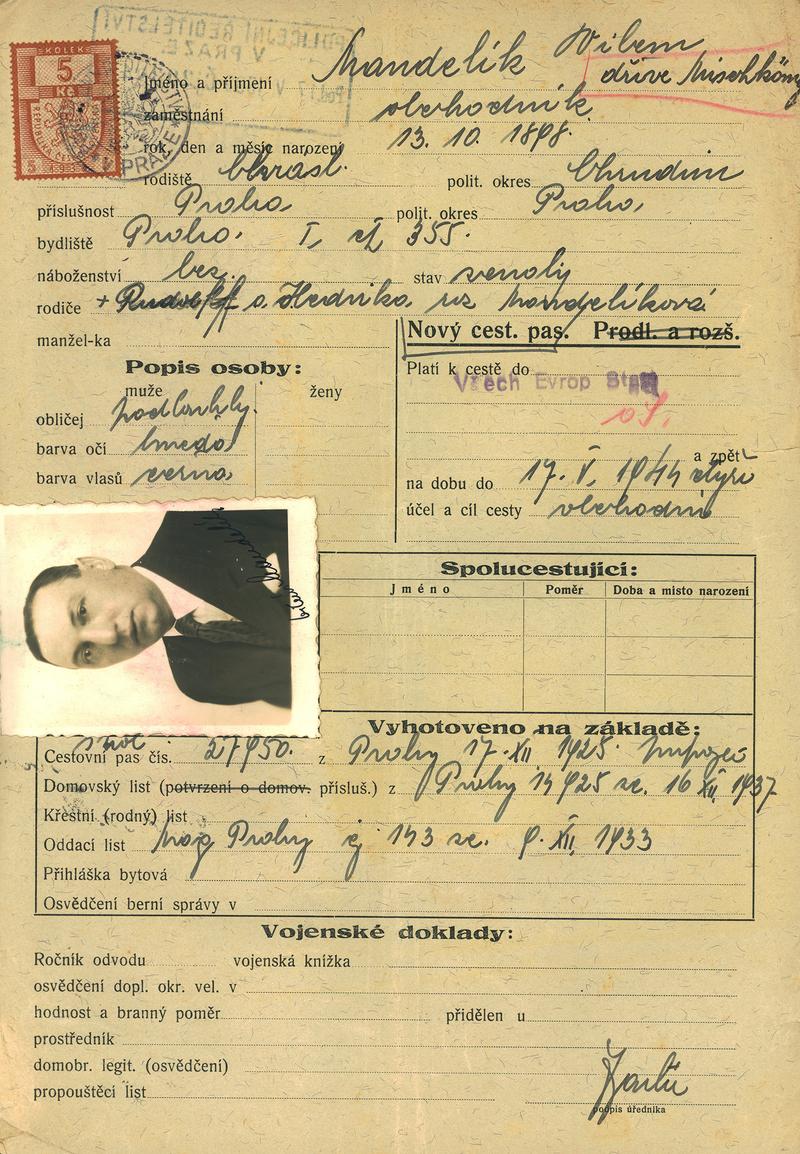 POLICEJNÍ ŘEDITELSTVÍ
V PRAZE
KOLEK
5
Kč
V PRAZE
Mandelík Vilem
dříve Mischkönig
Jméno a příjmení
zaměstnání obchodník
rok, den a měsíc narození 13. 10. 1898.
rodiště Chrast. polit. okres Chrudim
příslušnost Praha polit. okres Praha
bydliště Praha. I, čj 355.
náboženství bez. stav ženatý
rodiče + Rudolf a Hednika roz Mandelíková
manžel-ka
Nový cest. pas. Prodl. a rozš.
Popis osoby:
muže ženy
obličej podlouhlý.
barva očí hnědá
barva vlasů černá
Platí k cestě do Všech Evrop Států
a zpět
na dobu do 17. V. 1944 čtyři
účel a cíl cesty obchodní
Spolucestující:
Jméno Poměr Doba a místo narození
Vyhotoveno na základě:
Cestovní pas čís. 27950. z Prahy 17. XII 1925.
Domovský list (potvrzení o domov. přísluš.) z Prahy 16 XII, 1937
Křestní (rodný) list
Oddací list mag Prahy čj 143 ze. 9. XII, 1933
Přihláška bytová
Osvědčení berní správy v
Vojenské doklady:
Ročník odvodu vojenská knížka
osvědčení dopl. okr. vel. v
hodnost a branný poměr přidělen u
prostředník
domobr. legit. (osvědčení)
propouštěcí list
podpis úředníka